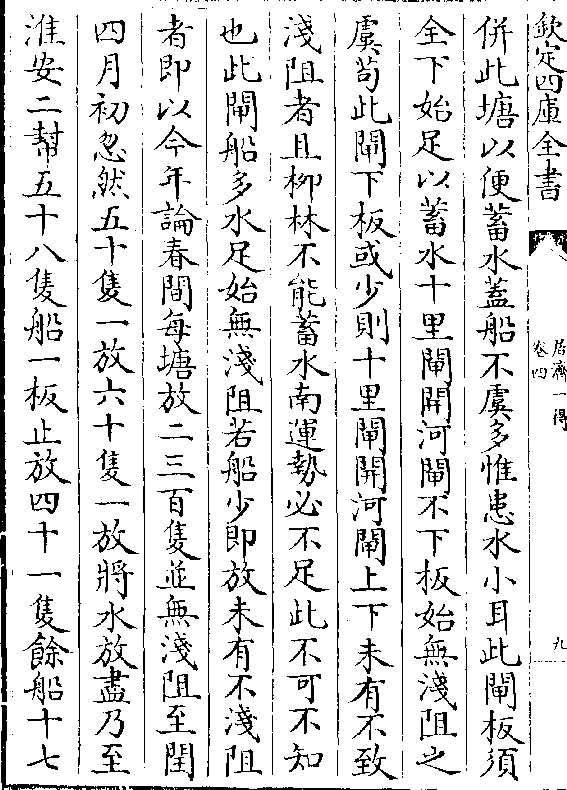 欽定四庫全書
居濟一得
卷四
九
併此塘以便蓄水蓋船不虞多惟患水小耳此閘板須
全下始足以蓄水十里閘開河閘不下板始無淺阻之
虞苟此閘下板或少則十里閘開河閘上下未有不致
淺阻者且柳林不能蓄水南運勢必不足此不可不知
也此閘船多水足始無淺阻若船少即放未有不淺阻
者即以今年論春間每塘放二三百隻並無淺阻至閏
四月初忽然五十隻一放六十隻一放將水放盡乃至
淮安二幫五十八隻船一板止放四十一隻餘船十七